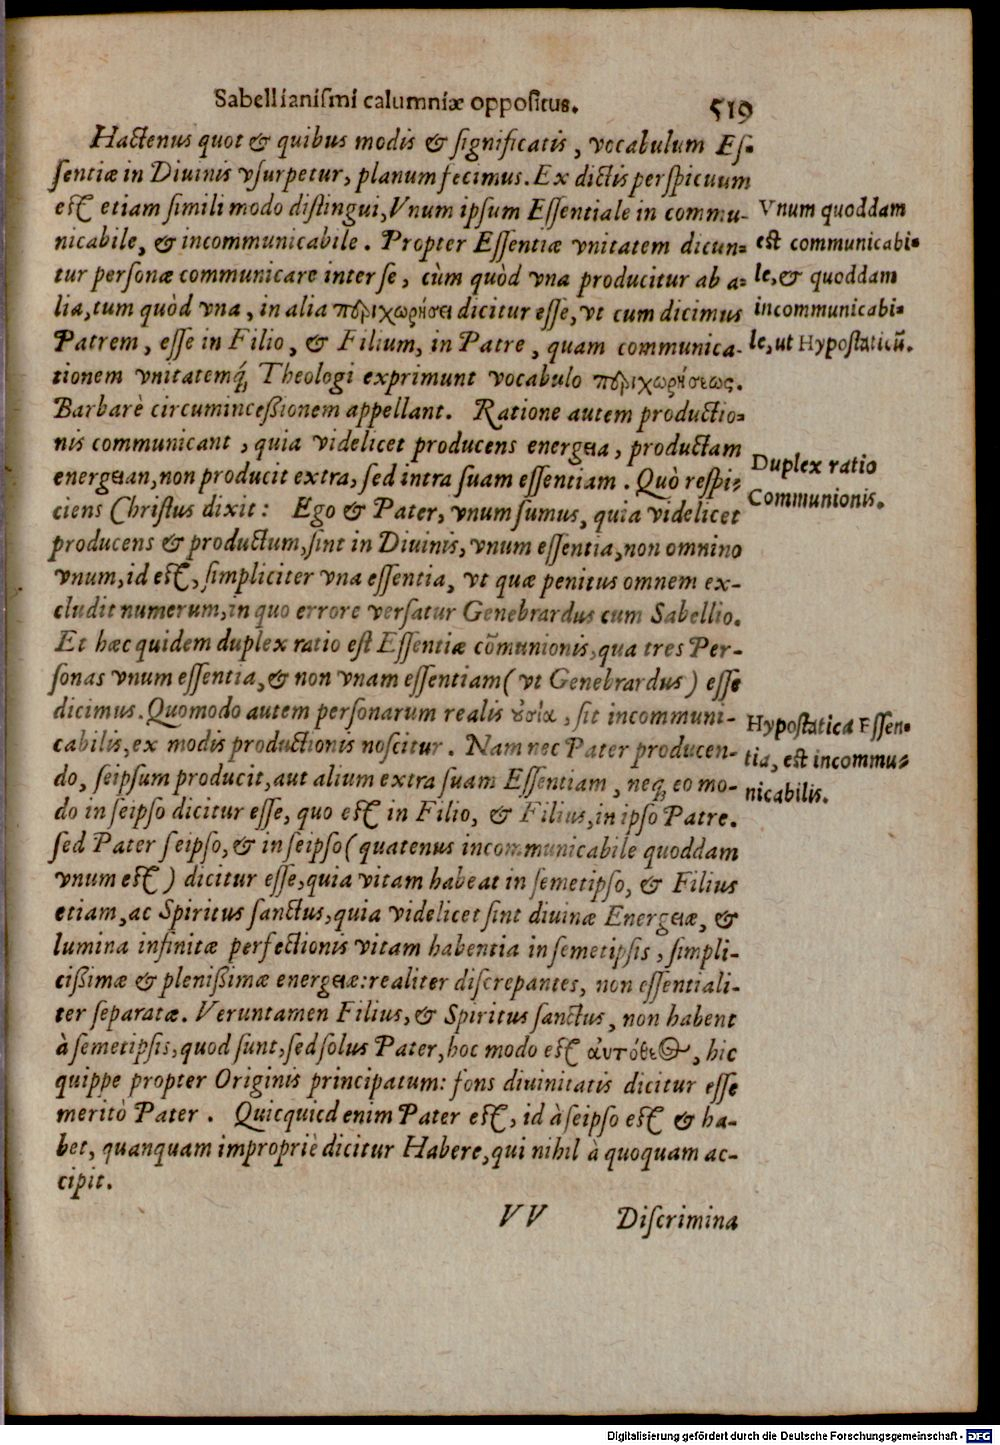 Sabellianismi calumniæ oppositus. 519
Hactenus quot & quibus modis & significatis, vocabulum Es-
sentiæ in Diuinis vsurpetur, planum fecimus. Ex dictis perspicuum
est etiam simili modo distingui, Vnum ipsum Essentiale in commu-
nicabile, & incommunicabile. Propter Essentiæ vnitatem dicun-
tur personæ communicare inter se, cùm quòd vna producitur ab a-
lia, tum quòd vna, in alia περιχωρήσει dicitur esse, vt cum dicimus
Patrem, esse in Filio, & Filium, in Patre, quam communica-
tionem vnitatemq́; Theologi exprimunt vocabulo περιχωρήσεως.
Barbarè circuminceßionem appellant. Ratione autem productio-
nis communicant, quia videlicet producens energeia, productam
energeian, non producit extra, sed intra suam essentiam. Quò respi-
ciens Christus dixit: Ego & Pater, vnum sumus, quia videlicet
producens & productum, sint in Diuinis, vnum essentia, non omnino
vnum, id est, simpliciter vna essentia, vt quæ penitus omnem ex-
cludit numerum, in quo errore versatur Genebrardus cum Sabellio.
Et hæc quidem duplex ratio est Essentiæ cõmunionis, qua tres Per-
sonas vnum essentia, & non vnam essentiam (vt Genebrardus) esse
dicimus. Quomodo autem personarum realis ὀυσία, sit incommuni-
cabilis, ex modis productionis noscitur. Nam nec Pater producen-
do, seipsum producit, aut alium extra suam Essentiam, neq; eo mo-
do in seipso dicitur esse, quo est in Filio, & Filius, in ipso Patre.
sed Pater seipso, & in seipso (quatenus incommunicabile quoddam
vnum est) dicitur esse, quia vitam habeat in semetipso, & Filius
etiam, ac Spiritus sanctus, quia videlicet sint diuinæ Energeiæ, &
lumina infinitæ perfectionis vitam habentia in semetipsis, simpli-
cißimæ & plenißimæ energeiæ: realiter discrepantes, non essentiali-
ter separatæ. Veruntamen Filius, & Spiritus sanctus, non habent
à semetipsis, quod sunt, sed solus Pater, hoc modo est ἀυτόθεος, hic
quippe propter Originis principatum: fons diuinitatis dicitur esse
meritò Pater. Quicquicd enim Pater est, id à seipso est & ha-
bet, quanquam impropriè dicitur Habere, qui nihil à quoquam ac-
cipit.
VV Discrimina
Vnum quoddam
est communicabi-
le, & quoddam
incommunicabi-
le, ut Hypostaticũ.
Duplex ratio
Communionis.
Hypostatica Essen-
tia, est incommu-
nicabilis.
Digitalisierung gefördert durch die Deutsche Forschungsgemeinschaft - DFG